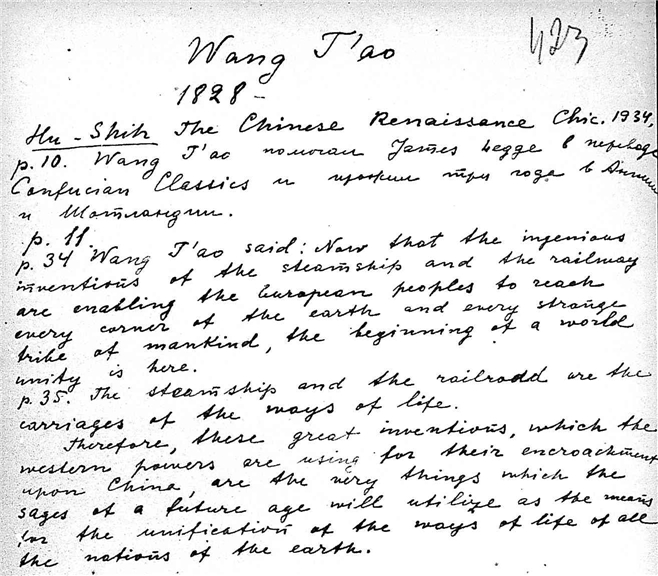 Wang T'ao
423
1828 -
Hu-Shih The Chinese Renaissance Chic. 1934,
p. 10. Wang T'ao помогал James Legge в переводе
Confucian Classics и прожил три года в Англии
и Шотландии.
p. 11.
p. 34 Wang T'ao said: Now that the ingenious
inventions of the steamship and the railway
are enabling the European peoples to reach
every corner of the earth and every strange
tribe of mankind, the beginning of a world
unity is here.
p. 35. The steamship and the railroad are the
carriages of the ways of life.
Therefore, these great inventions, which the
western powers are using for their encroachment
upon China, are the very things which the
sages of a future age will utilize as the means
for the unification of the ways of life of all
the nations of the earth.